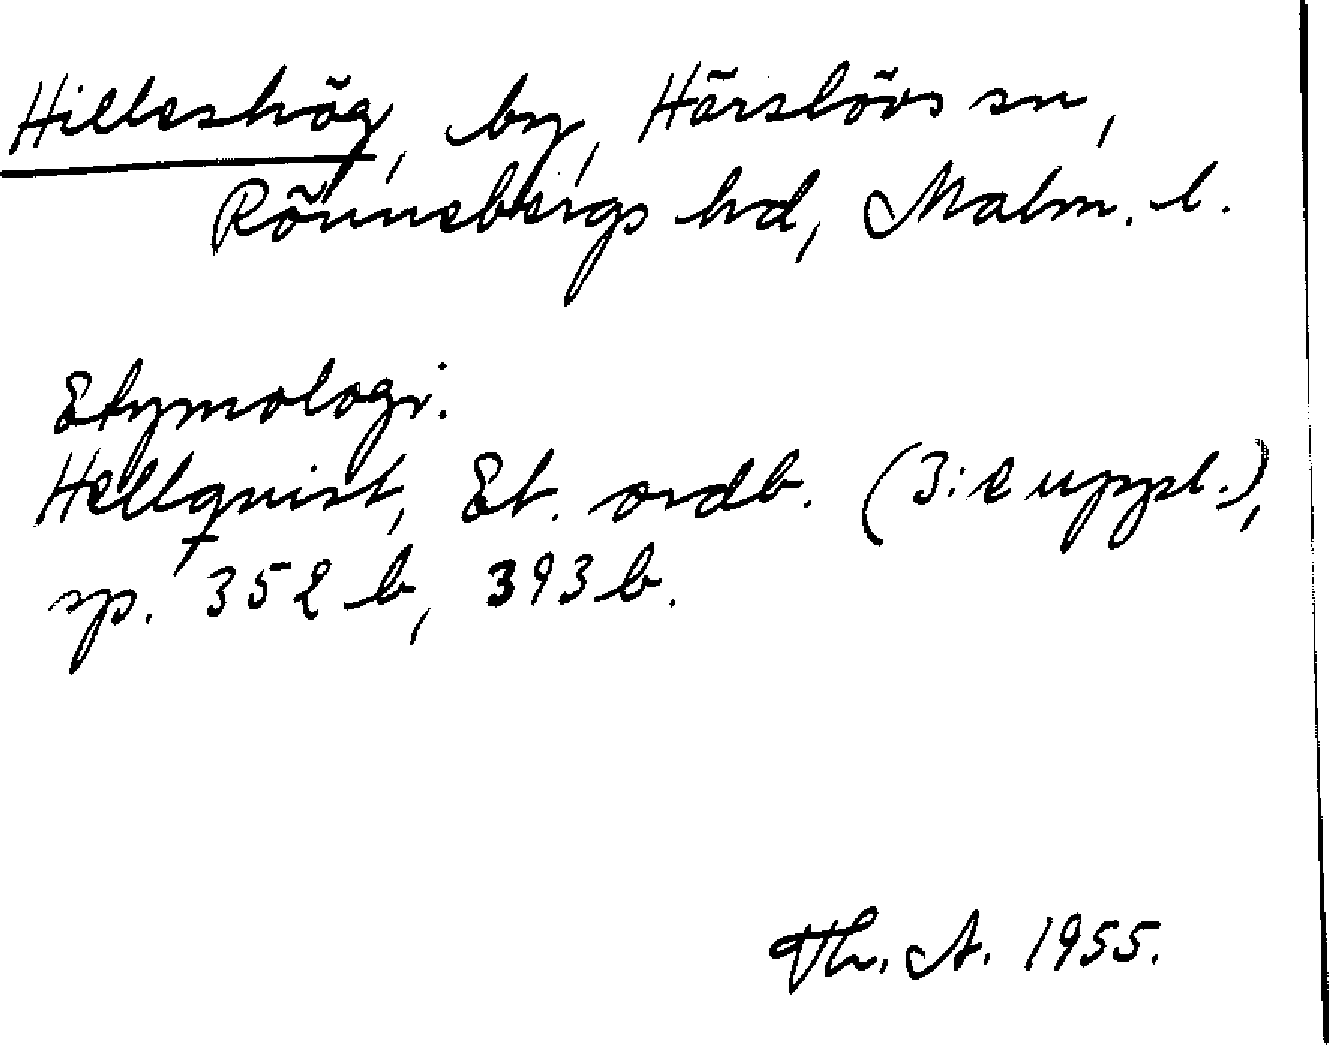 Hilleshög, by, Härslövs sn,
Rönnebergs hd, Malm. l.
Etymologi.
Hellquist, Et. ordb. (3:e uppl.),
sp. 352 b, 393 b.
Th. A. 1955.